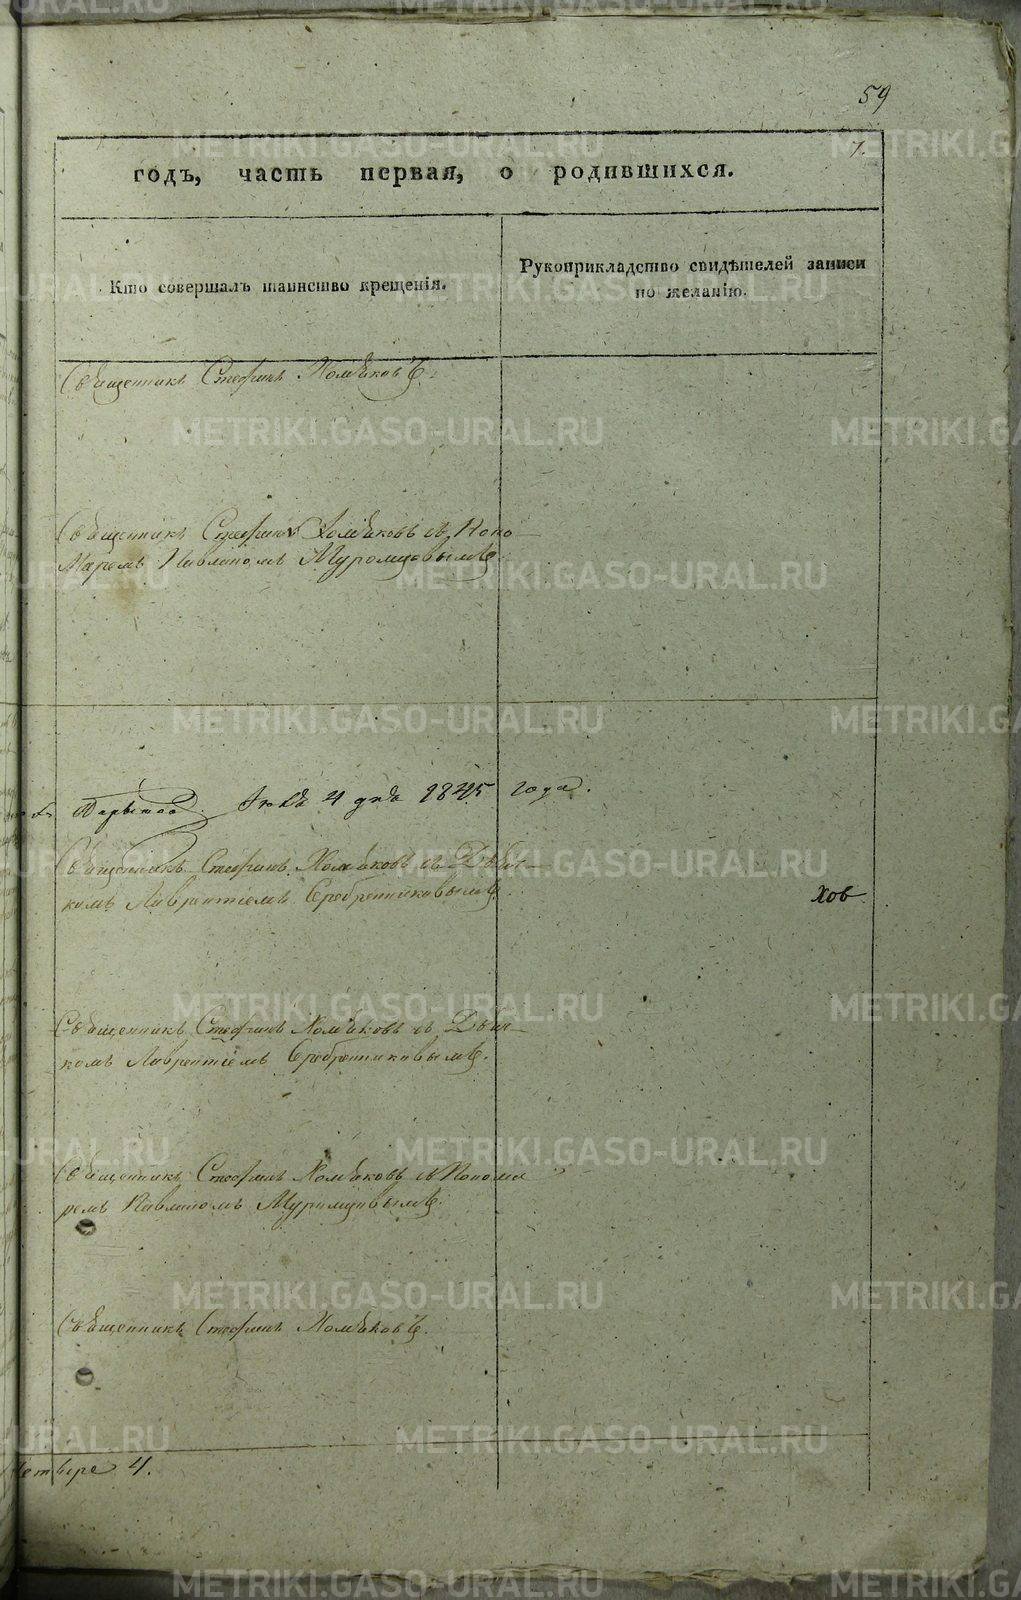 59
7.
годъ, часть первая, о родившихся.
Кто совершалъ таинство крещенія.
Рукоприкладство свидѣтелей записи
по желанію.
Священникъ Стефанъ Хомяковъ.
Священникъ Стефанъ Хомяковъ съ Поно-
маремъ Павлиномъ Муромцовымъ.
4 дня 1845 года.
Священникъ Стефанъ Хомяковъ съ Дьяч-
комъ Лаврентіемъ Серебренниковымъ.
Хов
Священникъ Стефанъ Хомяковъ съ Дьяч-
комъ Лаврентіемъ Серебренниковымъ.
Священникъ Стефанъ Хомяковъ съ Понома
ремъ Павлиномъ Муромцовымъ.
Священникъ Стефанъ Хомяковъ.
четыре 4.
METRIKI.GASO-URAL.RU